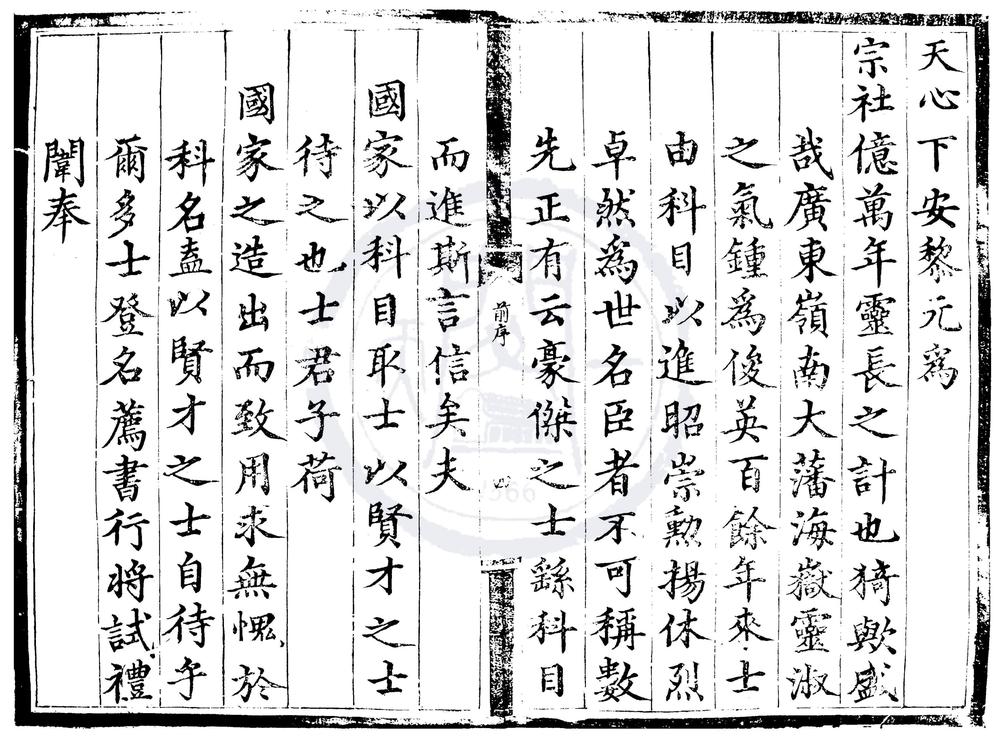 天心下安黎元爲
宗社億萬年靈長之計也猗歟盛
哉廣東嶺南大藩海嶽靈淑
之氣鍾爲俊英百餘年來士
由科目以進昭崇勲揚休烈
卓然爲世名臣者不可稱數
先正有云豪傑之士繇科目
前序
而進斯言信矣夫
國家以科目取士以賢才之士
待之也士君子荷
國家之造出而致用求無愧於
科名盍以賢才之士自待乎
爾多士登名薦書行將試禮
闈奉